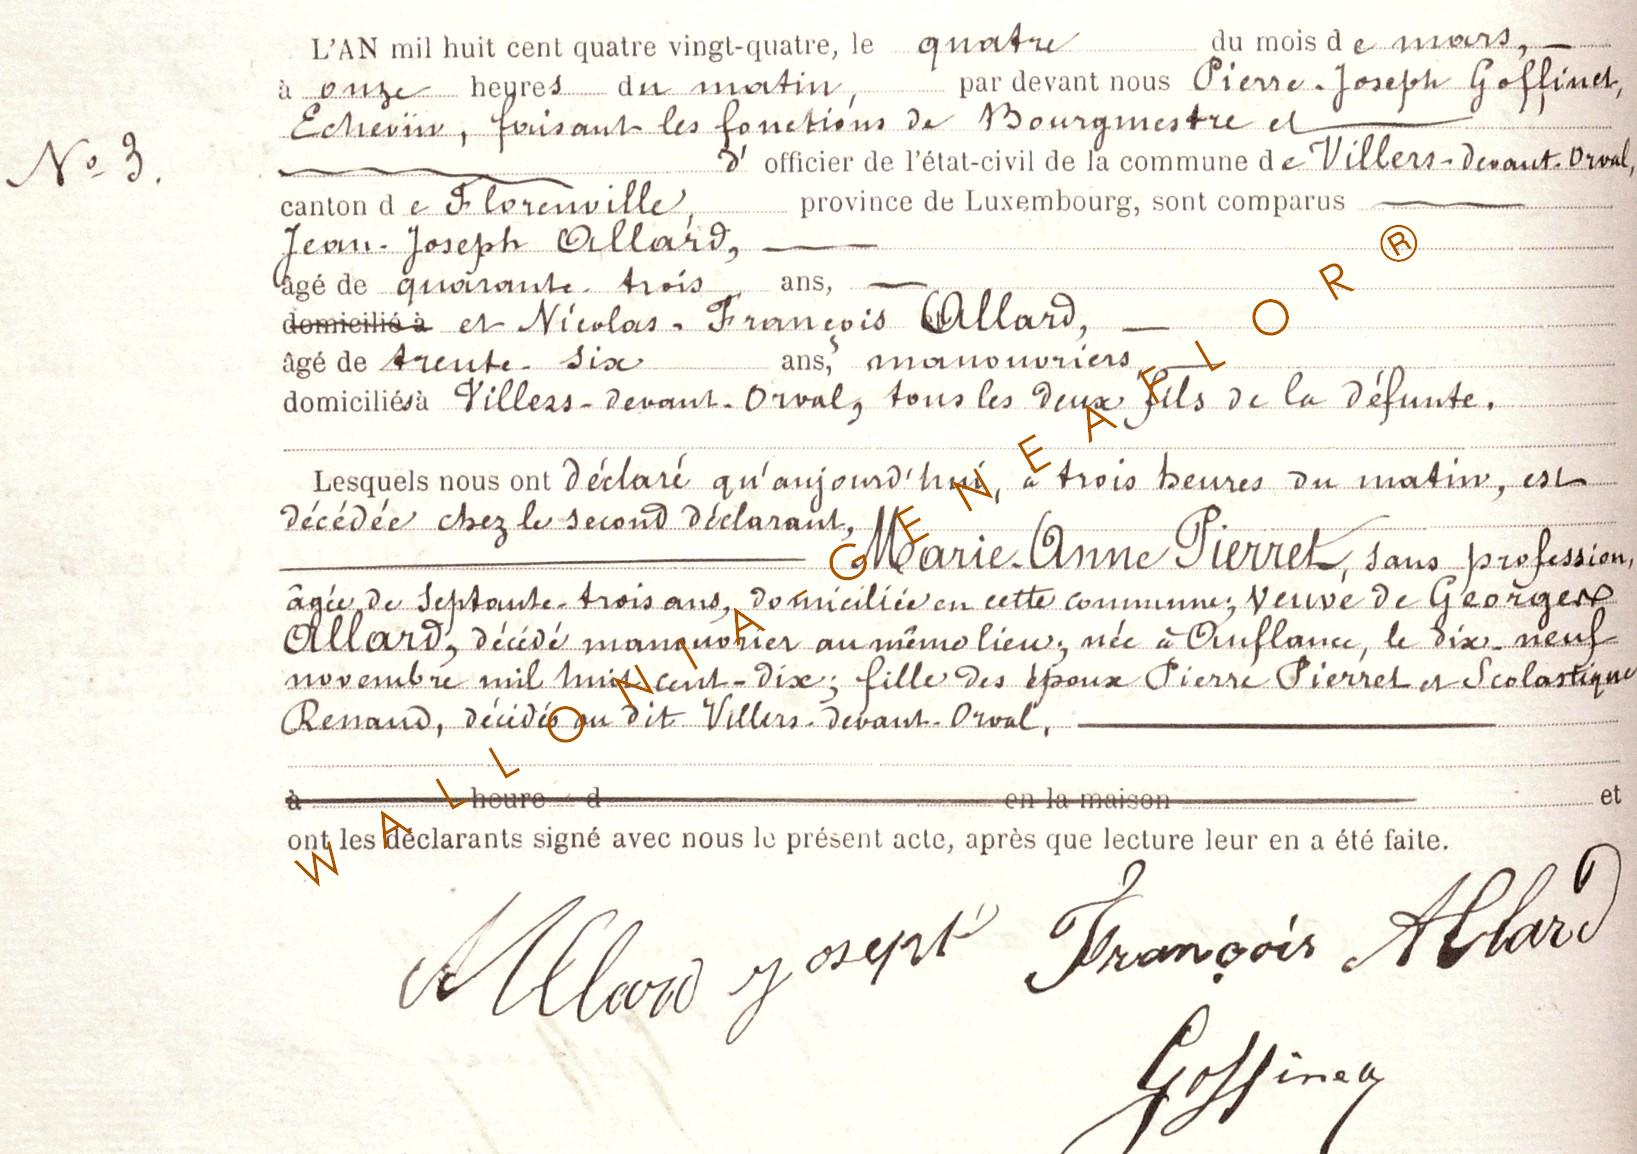 L'AN mil huit cent quatre vingt-quatre, le quatre du mois de mars,
à onze heures du matin, par devant nous Pierre-Joseph Goffinet,
Echevin, faisant les fonctions de Bourgmestre et
N° 3.
d' officier de l'état-civil de la commune de Villers-devant-Orval,
canton de Florenville, province de Luxembourg, sont comparus
Jean-Joseph Allard,
âgé de quarante-trois ans,
domicilié à et Nicolas-François Allard,
âgé de trente-six ans, manouvriers
domiciliés à Villers-devant-Orval, tous les deux fils de la défunte.
Lesquels nous ont déclaré qu'aujourd'hui, à trois heures du matin, est
décédée chez le second déclarant,
Marie-Anne Pierret, sans profession,
âgée de septante-trois ans, domiciliée en cette commune; veuve de Georges
Allard, décédé manouvrier au même lieu; née à Auflance, le dix-neuf
novembre mil huit cent-dix; fille des époux Pierre Pierret et Scolastique
Renaud, décédés au dit Villers-devant-Orval.
à heure d en la maison et
ont les déclarants signé avec nous le présent acte, après que lecture leur en a été faite.
Allard Joseph François Allard
Goffinet
WALLONIA-GENEAFLOR ®